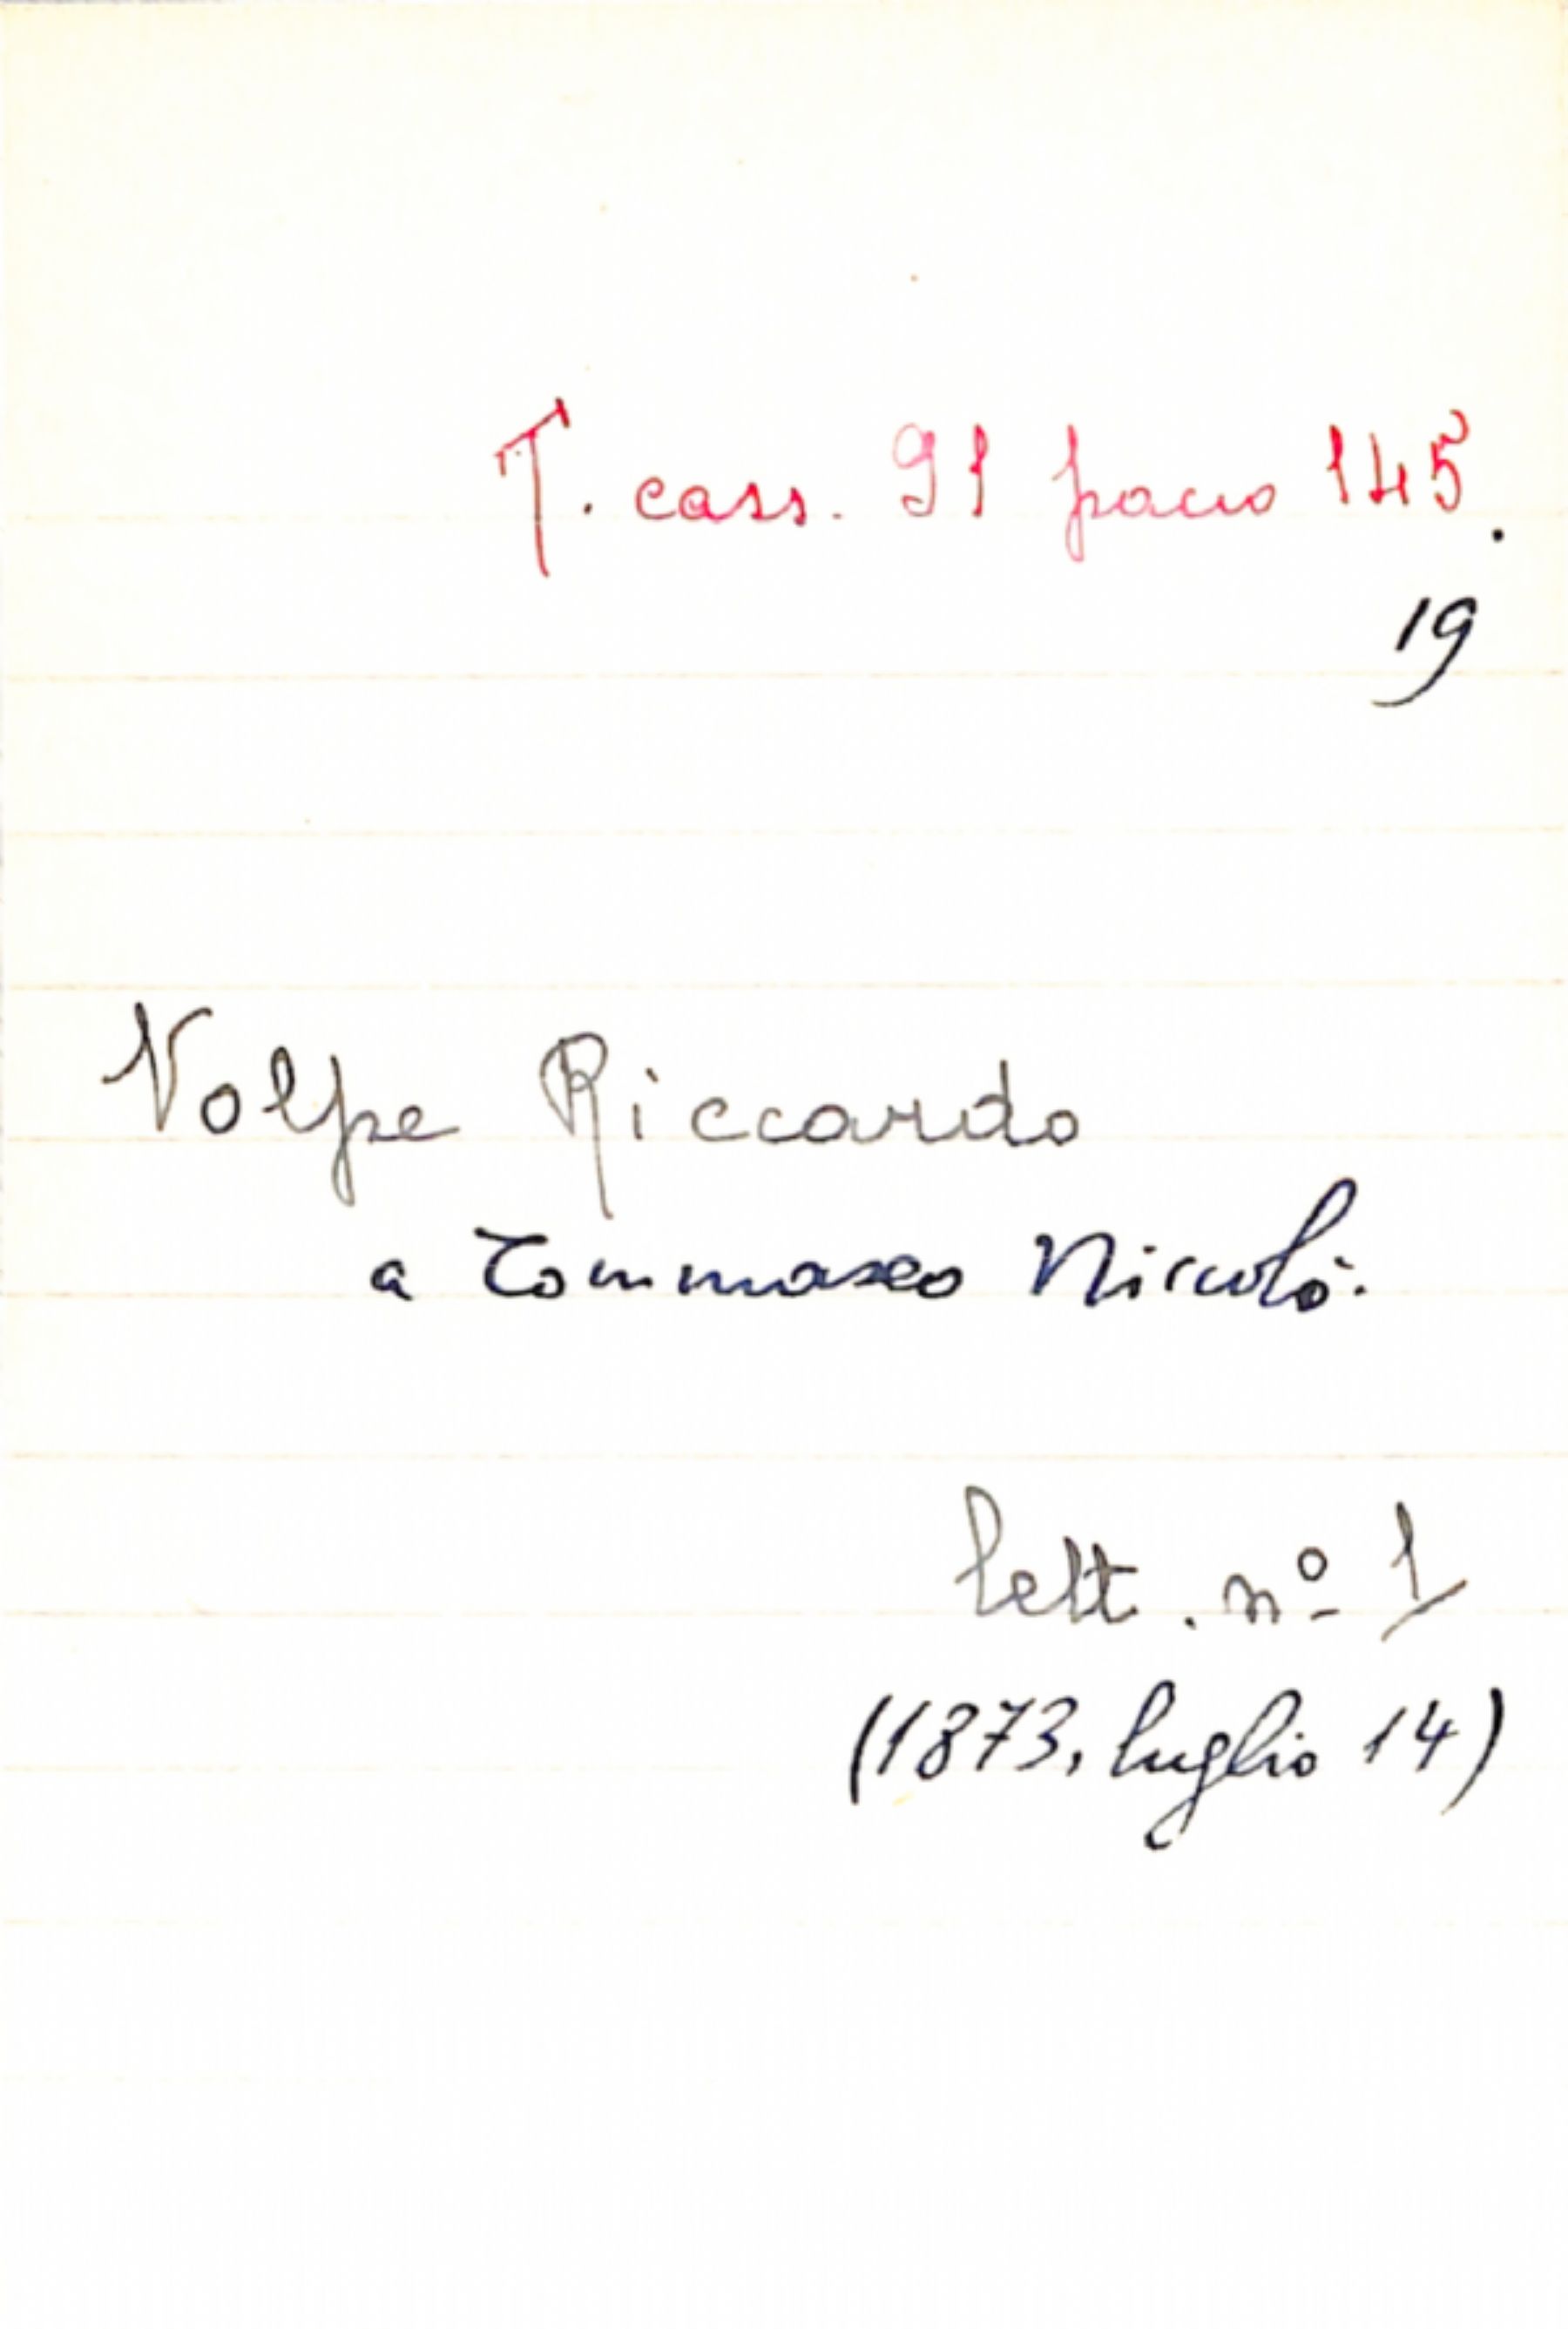 T. cass. 91 pacco 145.
19
Volpe Riccardo
a Tommaseo Niccolò.
lett. nº 1
(1873, luglio 14)